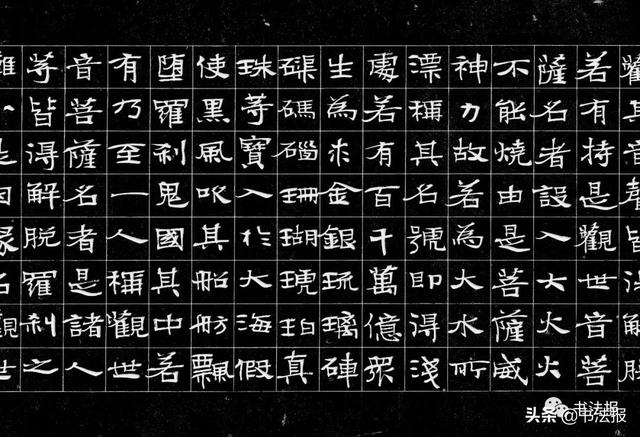 觀其音聲皆得解脫
若有持是觀世音菩
薩名者設入大火火
不能燒由是菩薩威
神力故若為大水所
漂稱其名號即得淺
處若有百千萬億眾
生為求金銀琉璃硨
磲碼碯珊瑚琥珀真
珠等寶入於大海假
使黑風吹其船舫飄
墮羅剎鬼國其中若
有乃至一人稱觀世
音菩薩名者是諸人
等皆得解脫羅剎之
難以是因緣名觀世
书法报
头条 @书法报